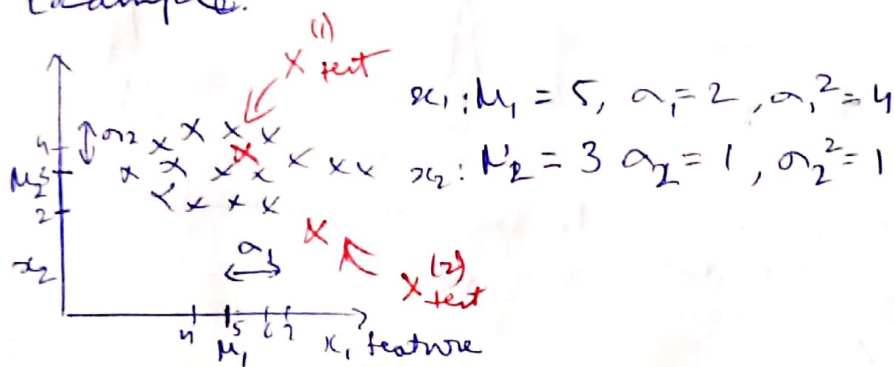 Example:
x^(1) test
x₁: μ₁ = 5, σ₁ = 2, σ₁² = 4
σ₂
4
μ₂ 3
x₂: μ₂ = 3 σ₂ = 1, σ₂² = 1
2
x₂
σ₁
x^(2) test
4 5 6 7
μ₁ x₁ feature